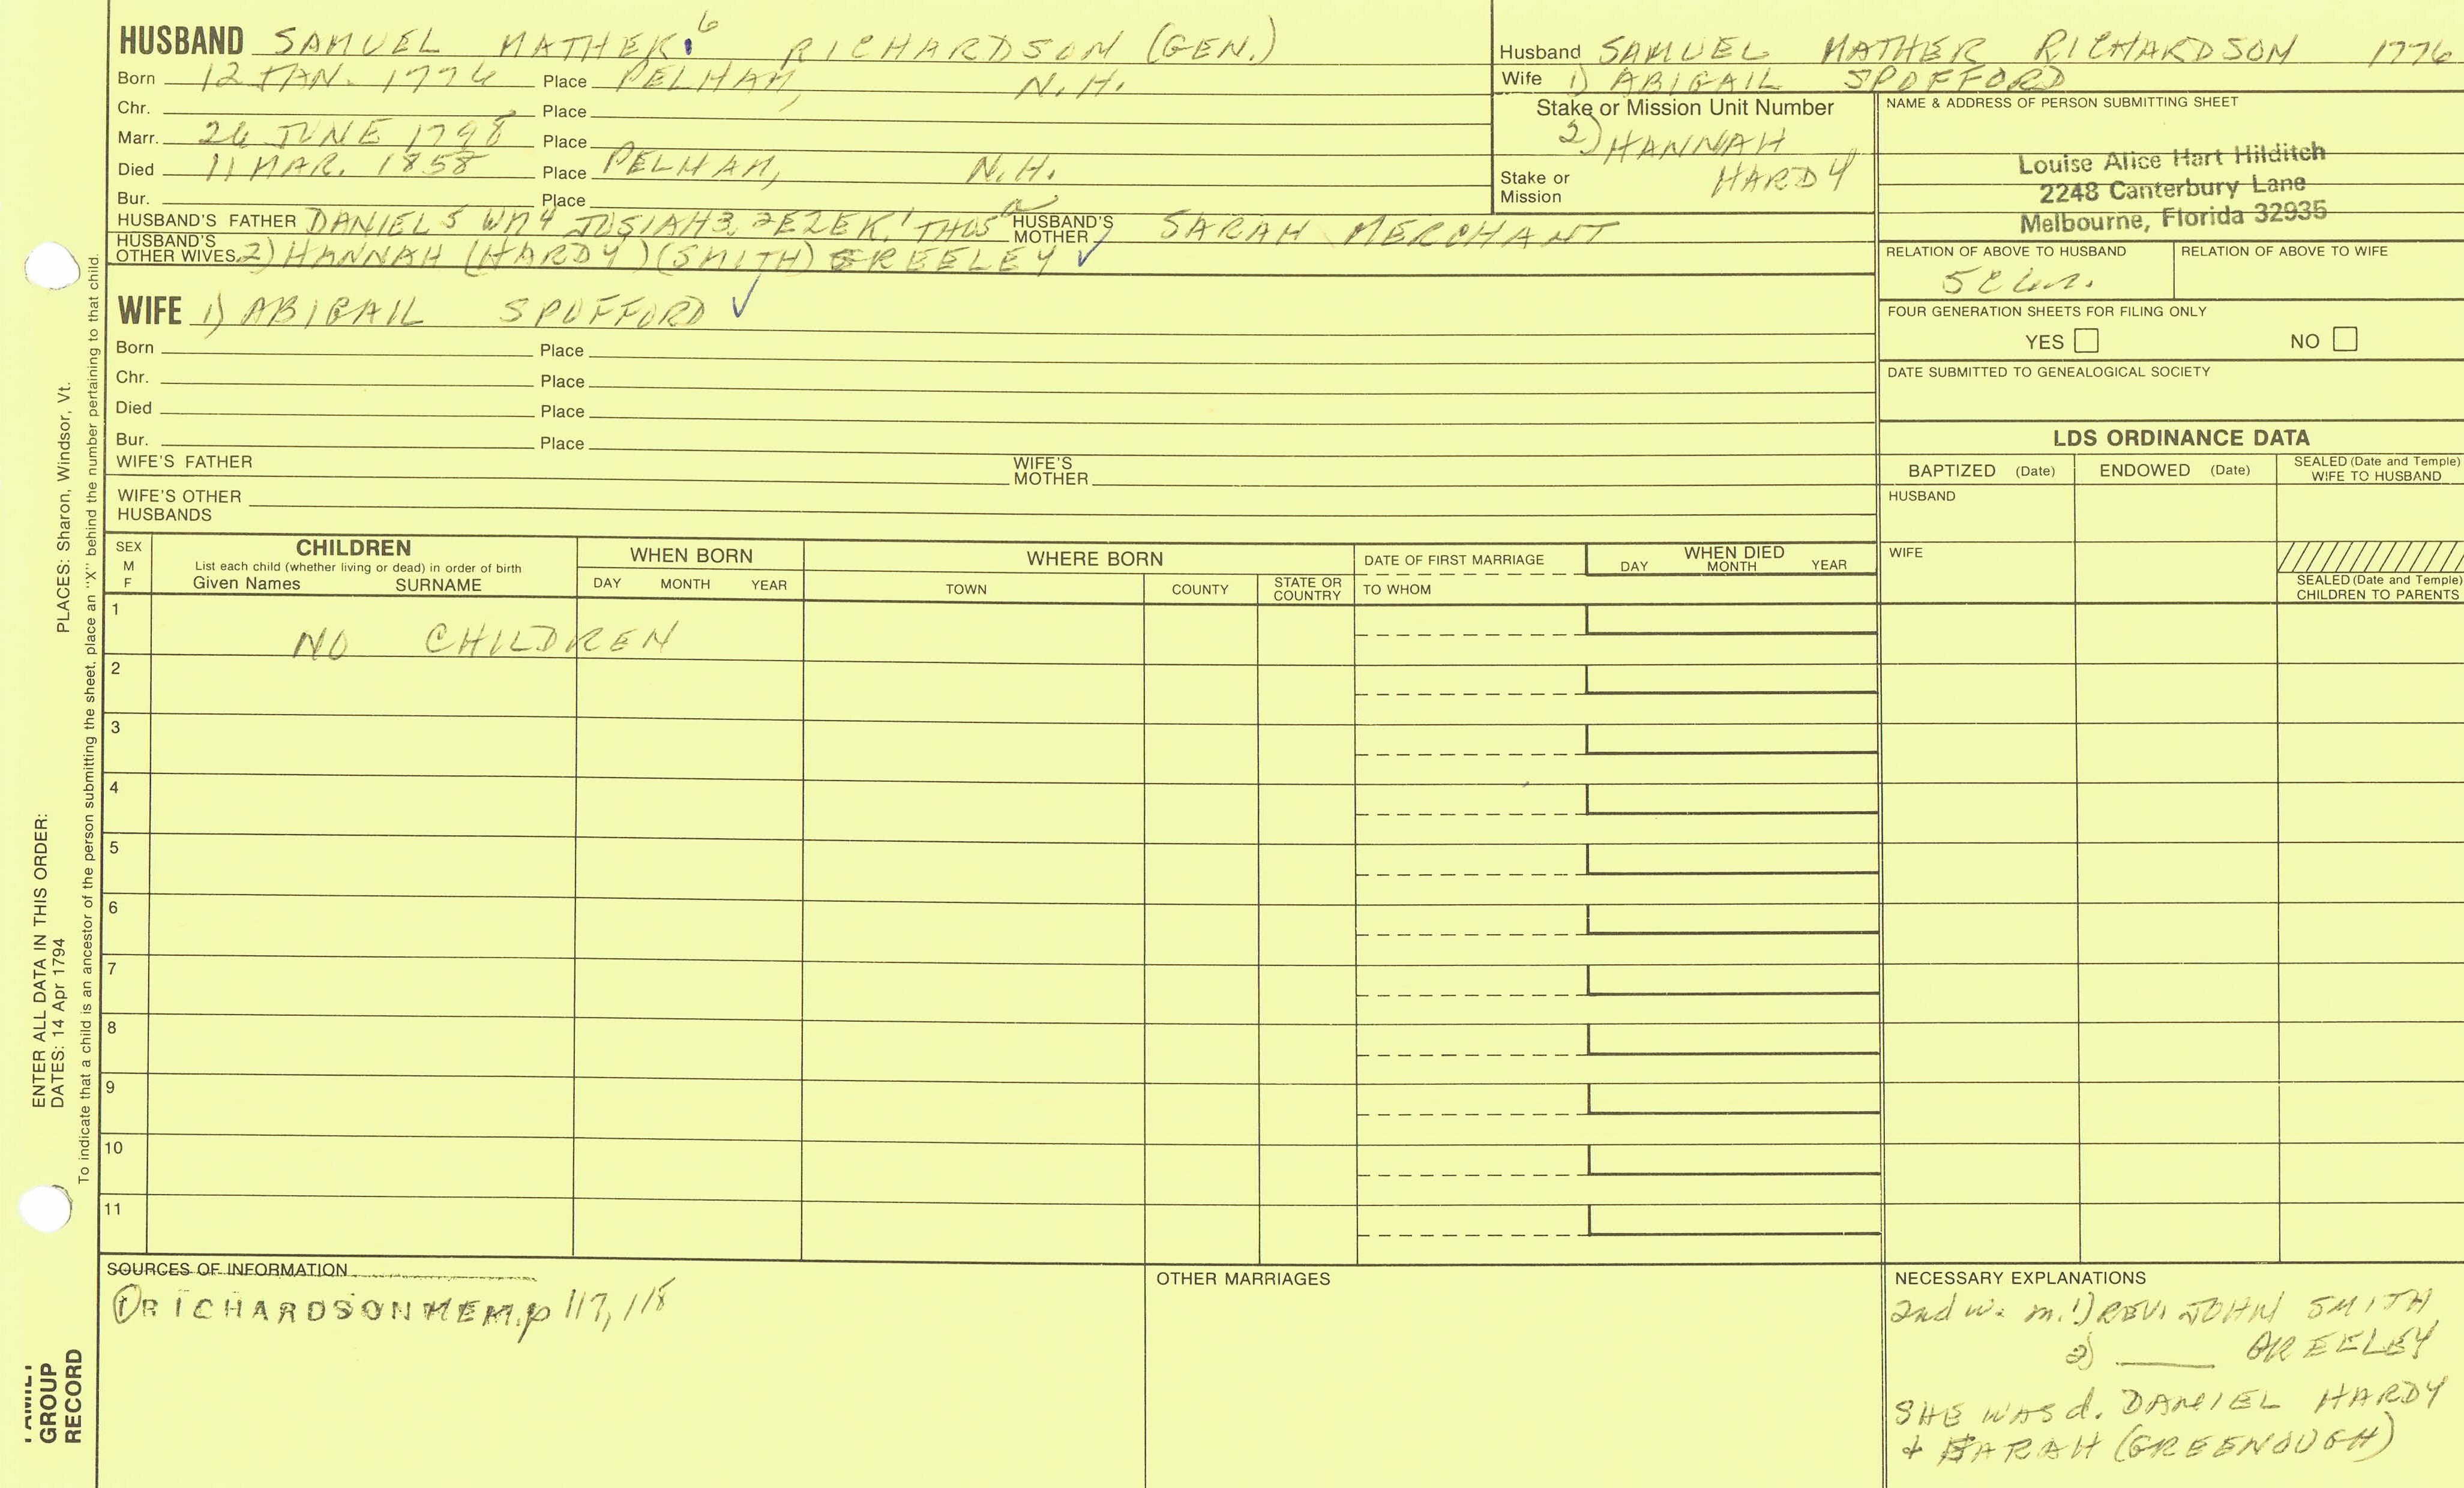 HUSBAND SAMUEL MATHER 6 RICHARDSON (GEN.)
Born 12 JAN. 1776 Place PELHAM, N.H.
Chr. Place
Marr. 26 JUNE 1798 Place
Died 11 MAR. 1858 Place PELHAM, N.H.
Bur. Place
HUSBAND'S FATHER DANIEL 5 WM 4 JOSIAH 3, 2 EZEK. 1 THOS HUSBAND'S MOTHER SARAH MERCHANT
HUSBAND'S OTHER WIVES 2) HANNAH (HARDY) (SMITH) GREELEY ✓
WIFE 1) ABIGAIL SPOFFORD ✓
Born Place
Chr. Place
Died Place
Bur. Place
WIFE'S FATHER WIFE'S MOTHER
WIFE'S OTHER HUSBANDS
Husband SAMUEL MATHER RICHARDSON 1776
Wife 1) ABIGAIL SPOFFORD
Stake or Mission Unit Number
2) HANNAH
HARDY
Stake or
Mission
NAME & ADDRESS OF PERSON SUBMITTING SHEET
Louise Alice Hart Hilditch
2248 Canterbury Lane
Melbourne, Florida 32935
RELATION OF ABOVE TO HUSBAND RELATION OF ABOVE TO WIFE
FOUR GENERATION SHEETS FOR FILING ONLY
YES NO
DATE SUBMITTED TO GENEALOGICAL SOCIETY
LDS ORDINANCE DATA
BAPTIZED (Date) ENDOWED (Date) SEALED (Date and Temple) WIFE TO HUSBAND
HUSBAND
WIFE
SEALED (Date and Temple)
CHILDREN TO PARENTS
SEX
M
F
CHILDREN
List each child (whether living or dead) in order of birth
Given Names SURNAME
WHEN BORN
DAY MONTH YEAR
WHERE BORN
TOWN COUNTY STATE OR COUNTRY
DATE OF FIRST MARRIAGE
TO WHOM
WHEN DIED
DAY MONTH YEAR
1 NO CHILDREN
2
3
4
5
6
7
8
9
10
11
SOURCES OF INFORMATION
① RICHARDSON MEM. p 117, 118
OTHER MARRIAGES
NECESSARY EXPLANATIONS
2nd w. m. 1) REV. JOHN SMITH
2) ____ GREELEY
SHE WAS d. DANIEL HARDY
+ SARAH (GREENOUGH)
PLACES: Sharon, Windsor, Vt.
ENTER ALL DATA IN THIS ORDER:
DATES: 14 Apr 1794
To indicate that a child is an ancestor of the person submitting the sheet, place an "X" behind the number pertaining to that child.
FAMILY
GROUP
RECORD